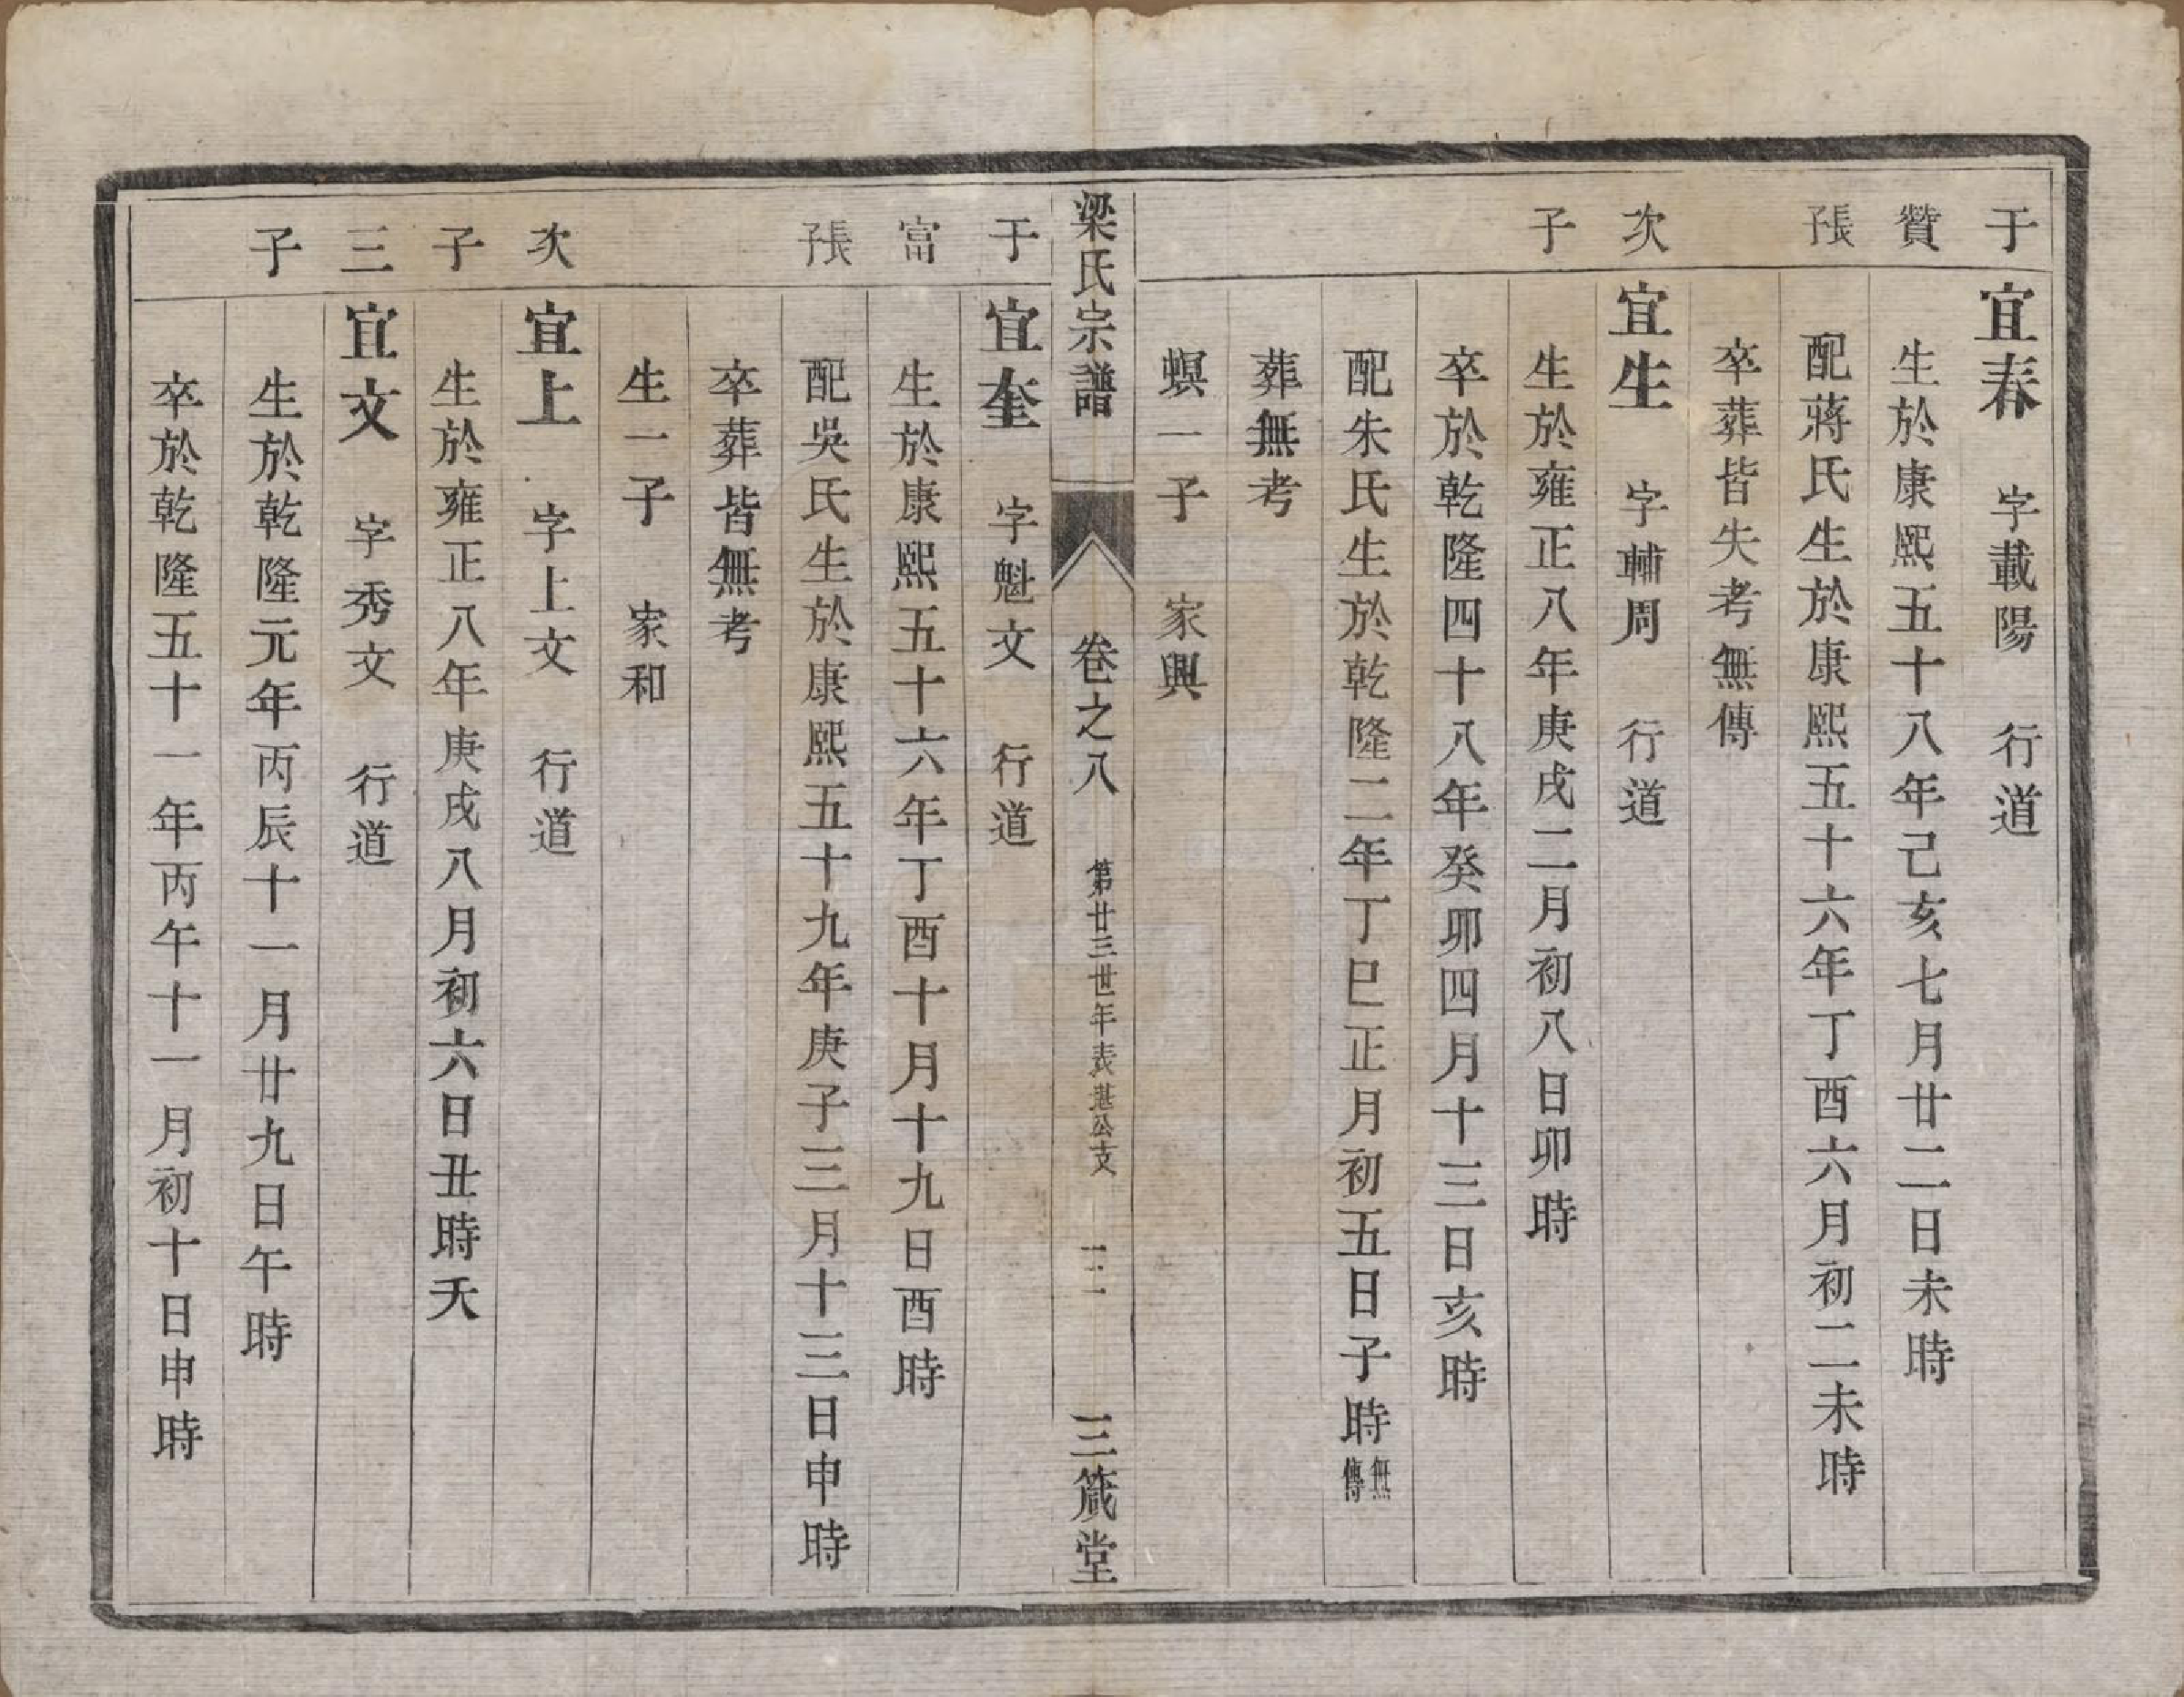 于 宜春 字載陽 行道
贊 生於康熙五十八年己亥七月廿二日未時
長子 配蔣氏生於康熙五十六年丁酉六月初二未時
卒葬皆失考無傳
次 宜生 字輔周 行道
子 生於雍正八年庚戌二月初八日卯時
卒於乾隆四十八年癸卯四月十三日亥時
配朱氏生於乾隆二年丁巳正月初五日子時無傳
葬無考
螟一子 家興
梁氏宗譜 卷之八 第廿三世年表 湛公支 三 三箴堂
于 宜奎 字魁文 行道
富 生於康熙五十六年丁酉十月十九日酉時
長子 配吳氏生於康熙五十九年庚子三月十三日申時
卒葬皆無考
生一子 家和
次 宜上 字上文 行道
子 生於雍正八年庚戌八月初六日丑時夭
三 宜文 字秀文 行道
子 生於乾隆元年丙辰十一月廿九日午時
卒於乾隆五十一年丙午十一月初十日申時